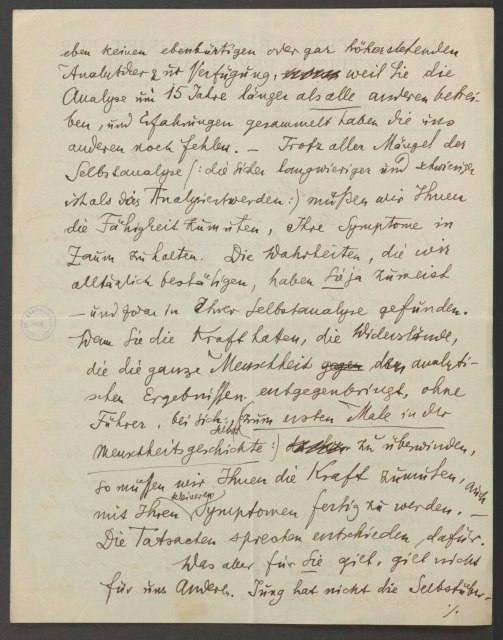 eben keinen ebenbürtigen oder gar höherstehenden
Analytiker zur Verfügung, weil Sie die
Analyse um 15 Jahre länger als alle anderen betrei-
ben, und Erfahrungen gesammelt haben die uns
anderen noch fehlen. – Trotz aller Mängel der
Selbstanalyse /: die sicher langwieriger und schwieriger
ist als das Analysiertwerden :/ müßen wir Ihnen
die Fähigkeit zumuten, Ihre Symptome in
Zaum zu halten. Die Wahrheiten, die wir
alltäglich bestätigen, haben Sie ja zumeist
– und zwar in Ihrer Selbstanalyse gefunden.
Wenn Sie die Kraft hatten, die Widerstände,
die die ganze Menschheit gegen den analyti-
schen Ergebnissen entgegenbringt, ohne
Führer, bei sich selbst /: zum ersten Male in der
Menschheitsgeschichte :/ zu überwinden,
so müssen wir Ihnen die Kraft zumuten, auch
mit Ihren kleineren Symptomen fertig zu werden. –
Die Tatsachen sprechen entschieden dafür.
Was aber für Sie gilt, gilt nicht
für uns Andere. Jung hat nicht die Selbstüber-
./.